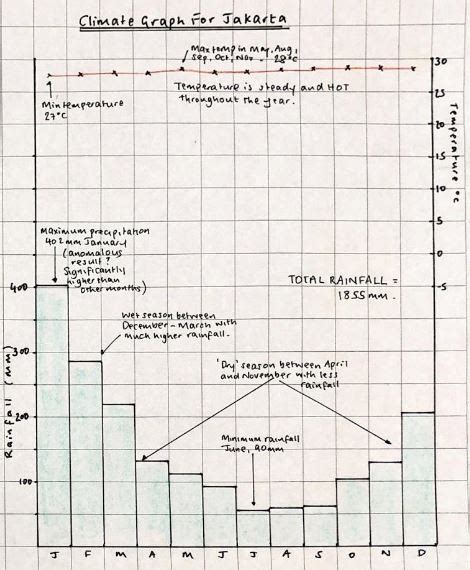 Climate Graph For Jakarta
Max temp in May, Aug,
Sep, Oct, Nov - 28°C
Temperature is steady and HOT
throughout the year.
Min temperature
27°C
30
25
20
15
10
5
0
-5
Temperature °C
Maximum precipitation
402mm January
(anomalous
result?
Significantly
higher than
other months)
TOTAL RAINFALL =
1855mm.
Wet season between
December - March with
much higher rainfall.
'Dry' season between April
and November with less
rainfall
Minimum rainfall
June, 90mm
400
300
200
100
Rainfall (mm)
J F M A M J J A S O N D